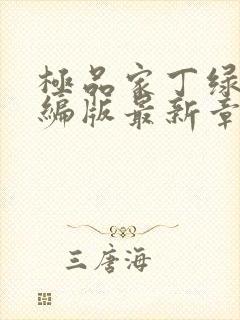 極品家丁绿
編版最新章
三唐海